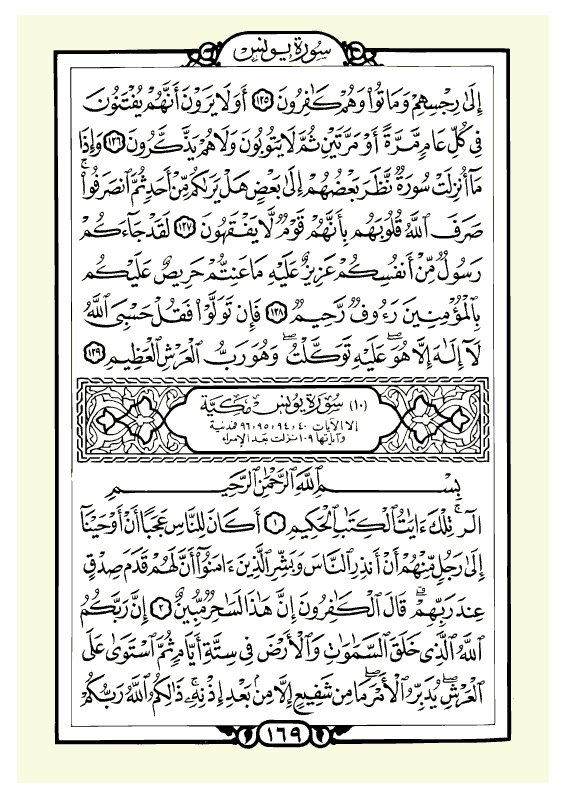 سورة يونس
إِلَىٰ رِجْسِهِمْ وَمَاتُوا۟ وَهُمْ كَٰفِرُونَ ١٢٥ أَوَلَا يَرَوْنَ أَنَّهُمْ يُفْتَنُونَ
فِى كُلِّ عَامٍ مَّرَّةً أَوْ مَرَّتَيْنِ ثُمَّ لَا يَتُوبُونَ وَلَا هُمْ يَذَّكَّرُونَ ١٢٦ وَإِذَا
مَآ أُنزِلَتْ سُورَةٌ نَّظَرَ بَعْضُهُمْ إِلَىٰ بَعْضٍ هَلْ يَرَىٰكُم مِّنْ أَحَدٍ ثُمَّ ٱنصَرَفُوا۟ ۚ
صَرَفَ ٱللَّهُ قُلُوبَهُم بِأَنَّهُمْ قَوْمٌ لَّا يَفْقَهُونَ ١٢٧ لَقَدْ جَآءَكُمْ
رَسُولٌ مِّنْ أَنفُسِكُمْ عَزِيزٌ عَلَيْهِ مَا عَنِتُّمْ حَرِيصٌ عَلَيْكُم
بِٱلْمُؤْمِنِينَ رَءُوفٌ رَّحِيمٌ ١٢٨ فَإِن تَوَلَّوْا۟ فَقُلْ حَسْبِىَ ٱللَّهُ
لَآ إِلَٰهَ إِلَّا هُوَ ۖ عَلَيْهِ تَوَكَّلْتُ ۖ وَهُوَ رَبُّ ٱلْعَرْشِ ٱلْعَظِيمِ ١٢٩
(١٠) سورة يونس مكية
إلا الآيات ٤٠، ٩٤، ٩٥، ٩٦ فمدنية
وآياتها ١٠٩ نزلت بعد الإسراء
بِسْمِ ٱللَّهِ ٱلرَّحْمَٰنِ ٱلرَّحِيمِ
الٓر ۚ تِلْكَ ءَايَٰتُ ٱلْكِتَٰبِ ٱلْحَكِيمِ ١ أَكَانَ لِلنَّاسِ عَجَبًا أَنْ أَوْحَيْنَآ
إِلَىٰ رَجُلٍ مِّنْهُمْ أَنْ أَنذِرِ ٱلنَّاسَ وَبَشِّرِ ٱلَّذِينَ ءَامَنُوٓا۟ أَنَّ لَهُمْ قَدَمَ صِدْقٍ
عِندَ رَبِّهِمْ ۗ قَالَ ٱلْكَٰفِرُونَ إِنَّ هَٰذَا لَسَٰحِرٌ مُّبِينٌ ٢ إِنَّ رَبَّكُمُ
ٱللَّهُ ٱلَّذِى خَلَقَ ٱلسَّمَٰوَٰتِ وَٱلْأَرْضَ فِى سِتَّةِ أَيَّامٍ ثُمَّ ٱسْتَوَىٰ عَلَى
ٱلْعَرْشِ ۖ يُدَبِّرُ ٱلْأَمْرَ ۖ مَا مِن شَفِيعٍ إِلَّا مِنۢ بَعْدِ إِذْنِهِۦ ۚ ذَٰلِكُمُ ٱللَّهُ رَبُّكُمْ
١٦٩